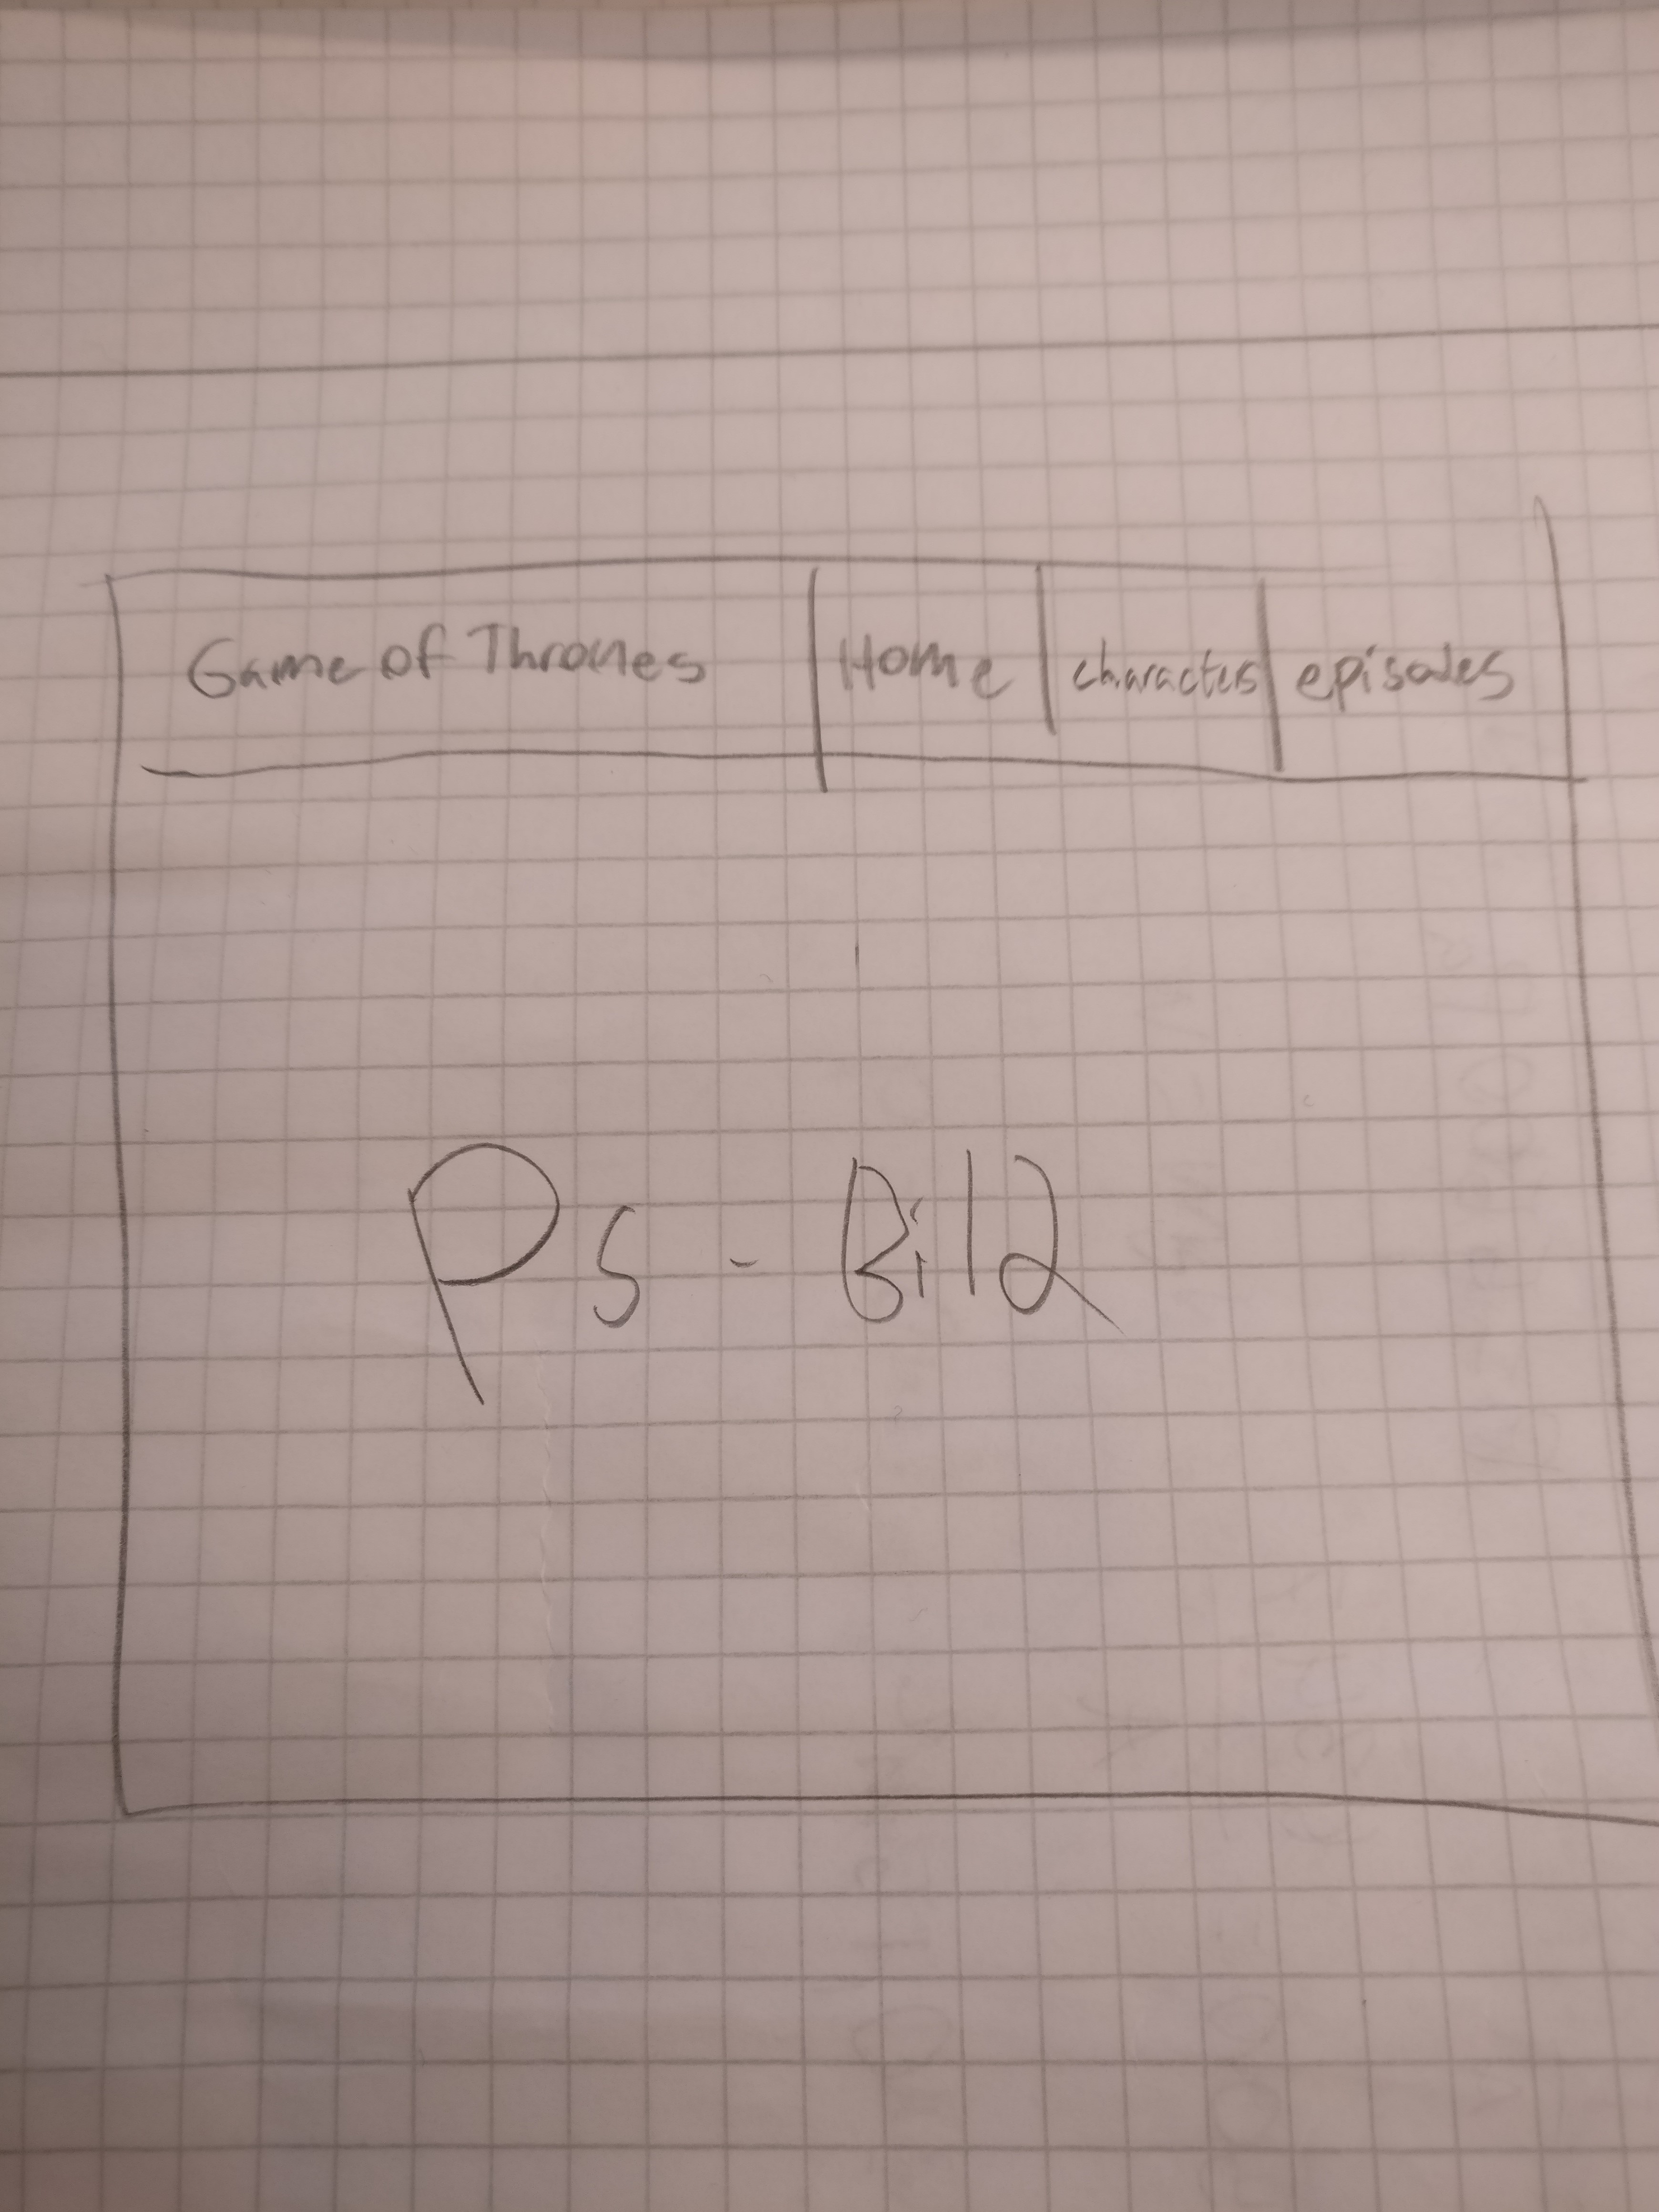 Game of Thrones Home characters episodes
Ps - Bild